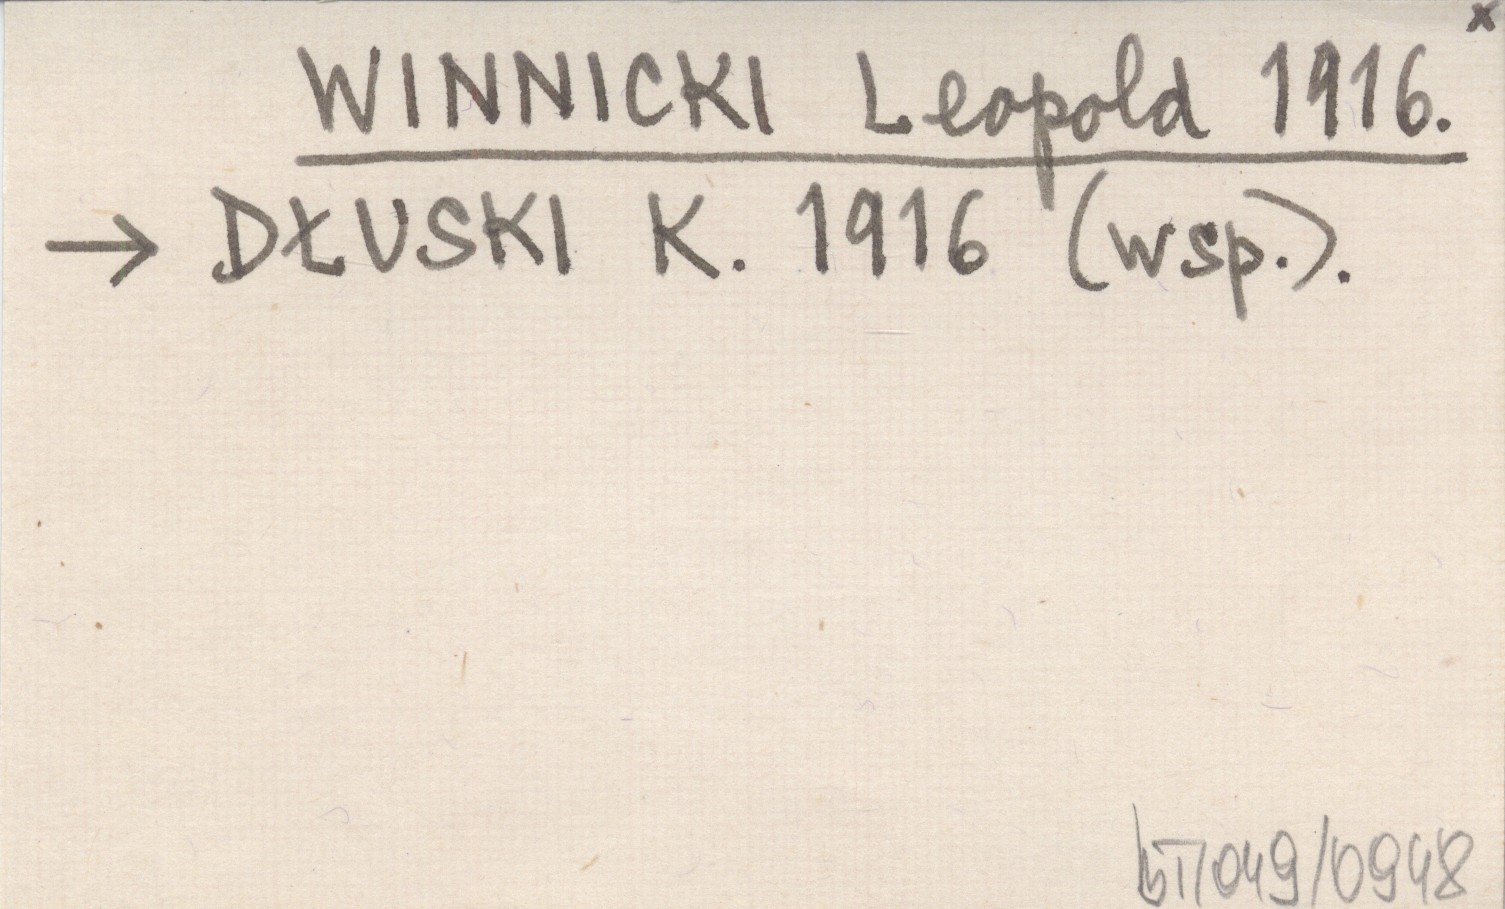 x
WINNICKI Leopold 1916.
→ DŁUSKI K. 1916 (wsp.).
049/0948